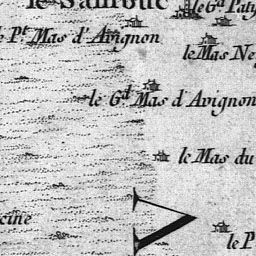 le Sauvouc
le G.ᵈ Paty
le P.ᵗ Mas d'Avignon
le Mas Ne
le G.ᵈ Mas d'Avignon
le Mas du
cine
le P